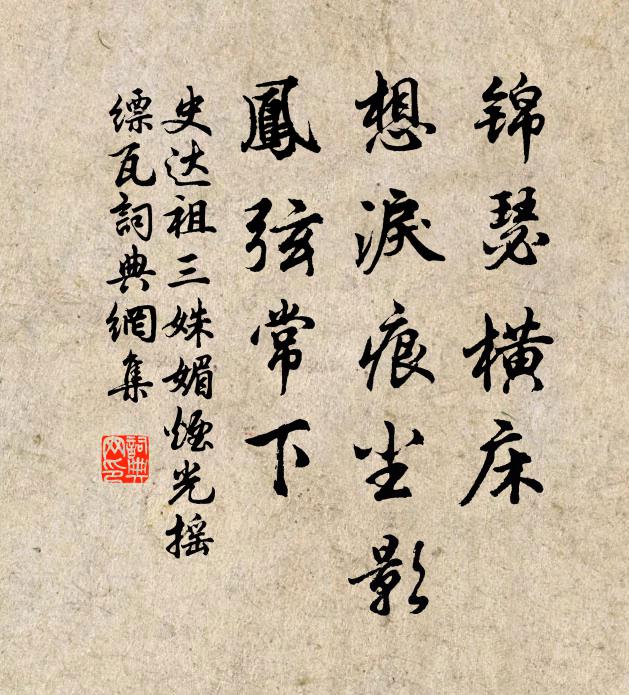 锦瑟横床
想淚痕尘影
鳳弦常下
史达祖三姝媚煙光摇
缥瓦詞典網集
詞典
网印